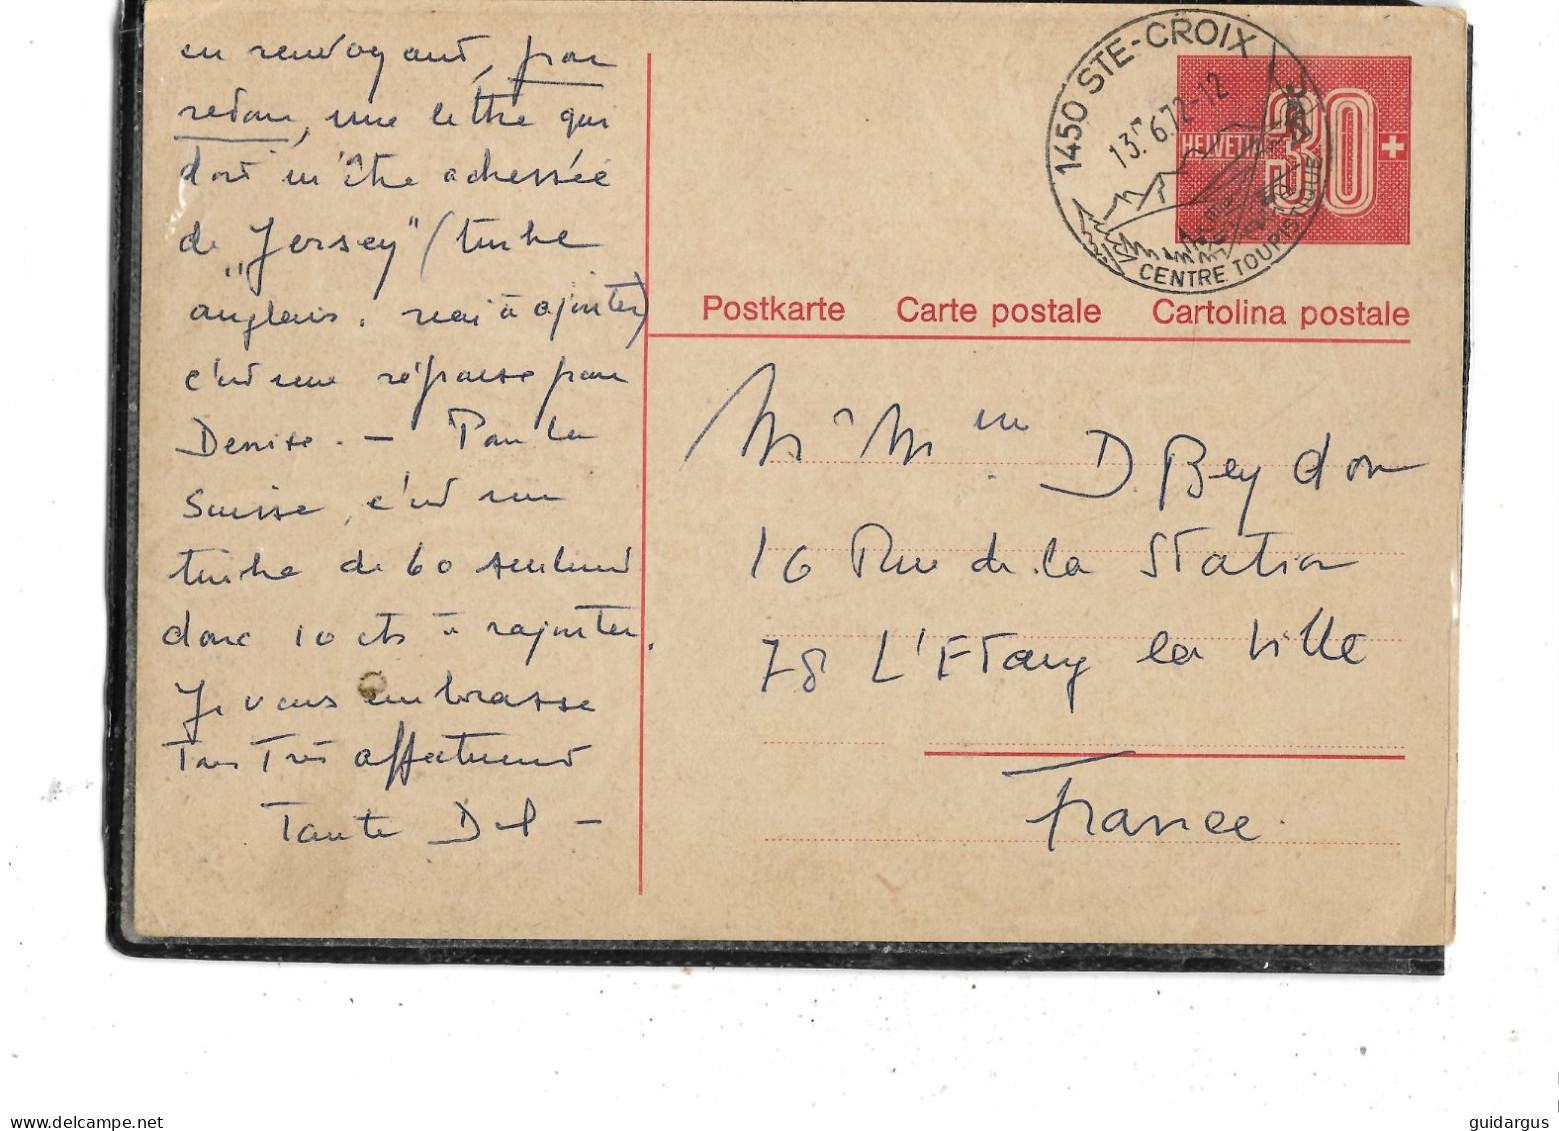 en renvoyant, par
retour, une lettre qui
doit m'être adressée
de "Jersey" (timbre
anglais. rien à ajouter)
c'est une réponse pour
Denise. — Pour la
Suisse, c'est un
timbre de 60 seulement
donc 10 cts à rajouter.
Je vous embrasse
Très Très affectueusement
Tante Del —
1450 STE-CROIX
13. 6.72-12
CENTRE TOURISTIQUE
HELVETIA 30 +
Postkarte Carte postale Cartolina postale
Mr Mme D. Beydon
16 Rue de la Station
78 L'Etang la Ville
France.
delcampe.net
guidargus